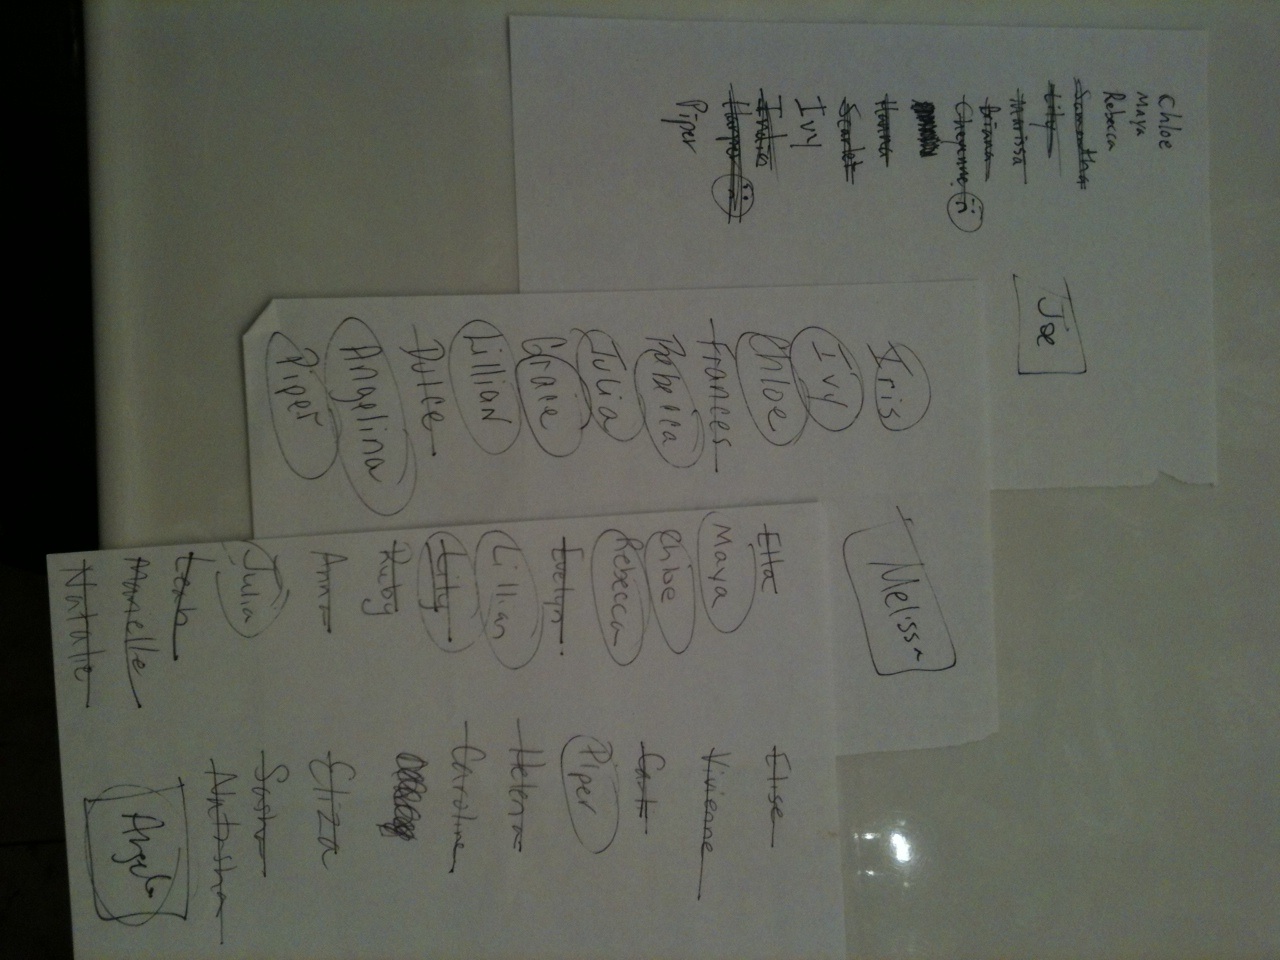 Chloe
Maya
Rebecca
Samantha
Lily
Marissa
Briana
Cheyenne
Hanna
Scarlet
Ivy
India
Harper
Piper
Joe
Iris
Ivy
Chloe
Frances
Rebecca
Julia
Gracie
Lillian
Dulce
Angelina
Piper
Melissa
Etta
Maya
Chloe
Rebecca
Evelyn
Lillian
Lily
Ruby
Anna
Julia
Leah
Marielle
Natalie
Elise
Vivienne
Piper
Helena
Caroline
Eliza
Sasha
Natasha
Angela